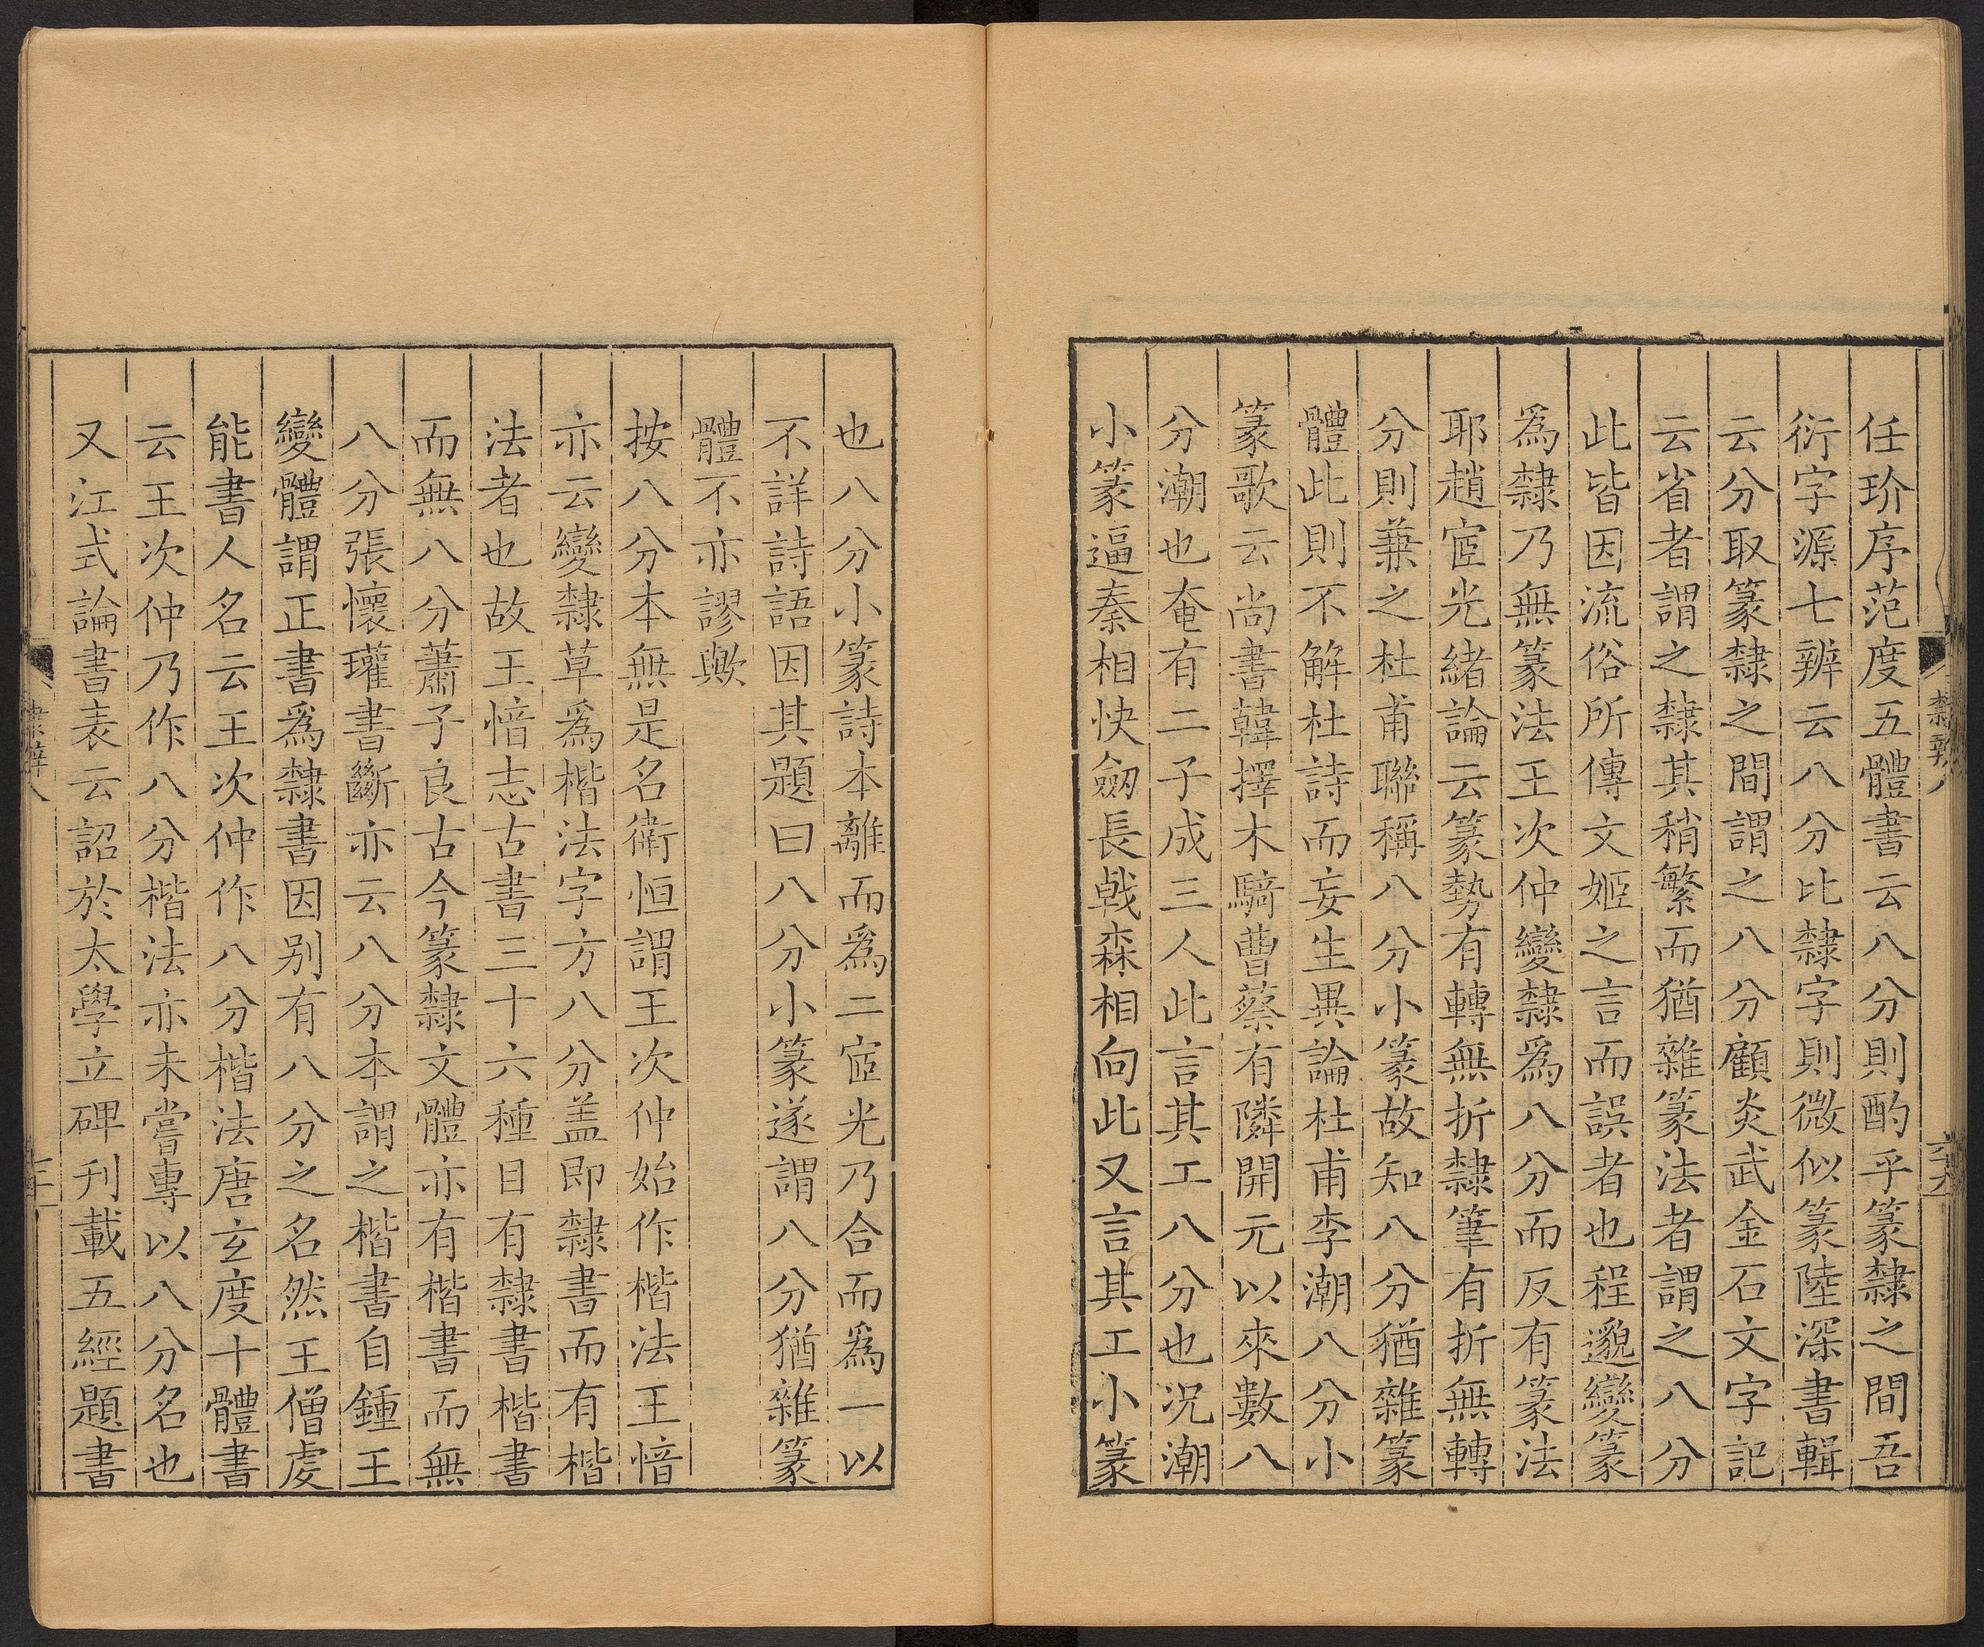 任玠序范度五體書云八分則酌乎篆隸之間吾
衍字源七辨云八分比隸字則微似篆陸深書輯
云分取篆隸之間謂之八分顧炎武金石文字記
云省者謂之隸其稍繁而猶雜篆法者謂之八分
此皆因流俗所傳文姬之言而誤者也程邈變篆
爲隸乃無篆法王次仲變隸爲八分而反有篆法
耶趙宧光緒論云篆勢有轉無折隸筆有折無轉
分則兼之杜甫聯稱八分小篆故知八分猶雜篆
體此則不解杜詩而妄生異論杜甫李潮八分小
篆歌云尚書韓擇木騎曹蔡有隣開元以來數八
分潮也奄有二子成三人此言其工八分也况潮
小篆逼秦相快劒長戟森相向此又言其工小篆
也八分小篆詩本離而爲二宧光乃合而爲一以
不詳詩語因其題曰八分小篆遂謂八分猶雜篆
體不亦謬歟
按八分本無是名衛恒謂王次仲始作楷法王愔
亦云變隸草爲楷法字方八分盖即隸書而有楷
法者也故王愔志古書三十六種目有隸書楷書
而無八分蕭子良古今篆隸文體亦有楷書而無
八分張懷瓘書斷亦云八分本謂之楷書自鍾王
變體謂正書爲隸書因别有八分之名然王僧虔
能書人名云王次仲作八分楷法唐玄度十體書
云王次仲乃作八分楷法亦未嘗專以八分名也
又江式論書表云詔於太學立碑刋載五經題書